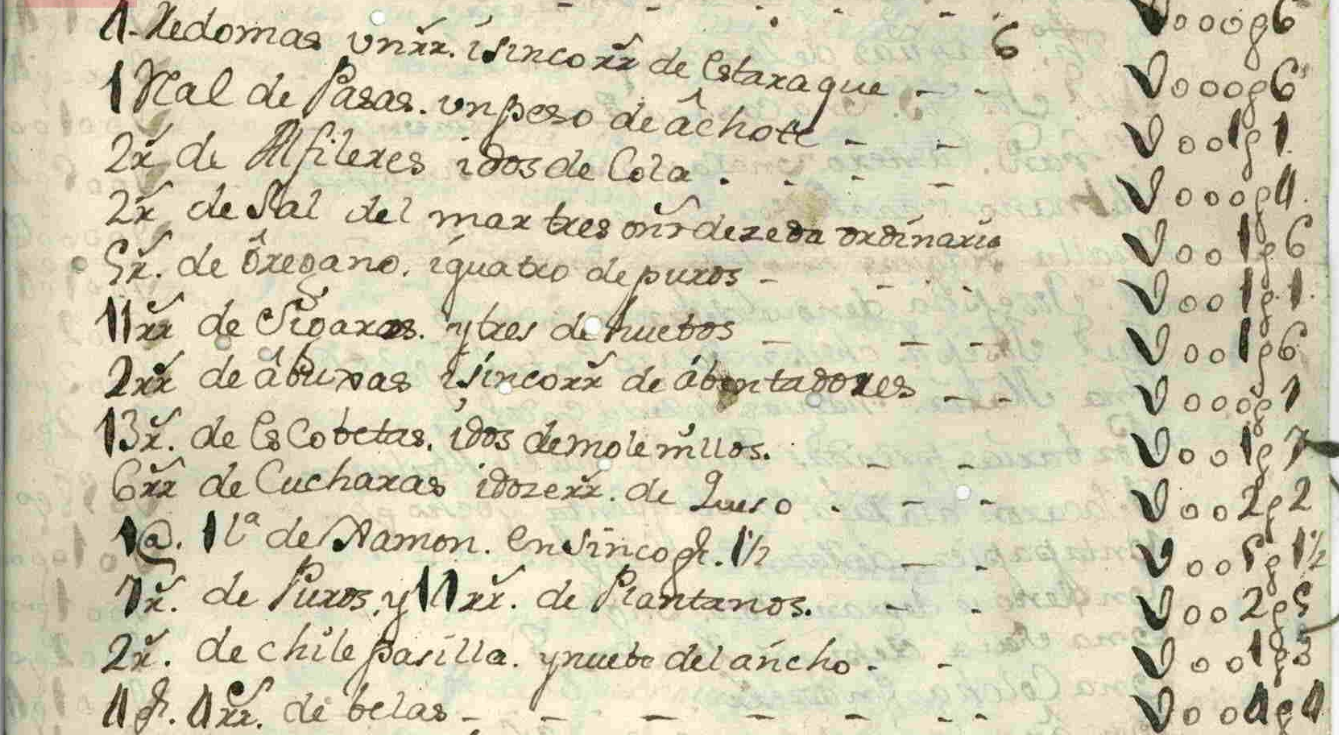 4. Redomas un rr. i sinco rr de Estaraque - - V000p6
1 Real de Pasas. un peso de áchote - - V000p6
2r de Alfileres i dos de Cola . - - - V001p1.
2r de Sal del mar tres onr de zeda ordinaria V000p4.
5r. de Óregano. i quatro de puros - - - V001p6
11rr de Sigaros. y tres de huebos - - - V001p1.
2rr de áburas i sinco rr de ábentadores - - V001p6
13r. de Escobetas. i dos de molenillos. - - V000p1
6rr de Cucharas i doze rr. de Queso . - - V001p7
1@. 1lª de Jamon. en sinco p. 1½ - - V002p2
7r. de Puros, y 11rr. de Plantanos. - - V005p1½
2r. de chile pasilla. y nuebe del áncho - - V002p5
4p. 4rr. de belas - - - - - V001p3
V004p4